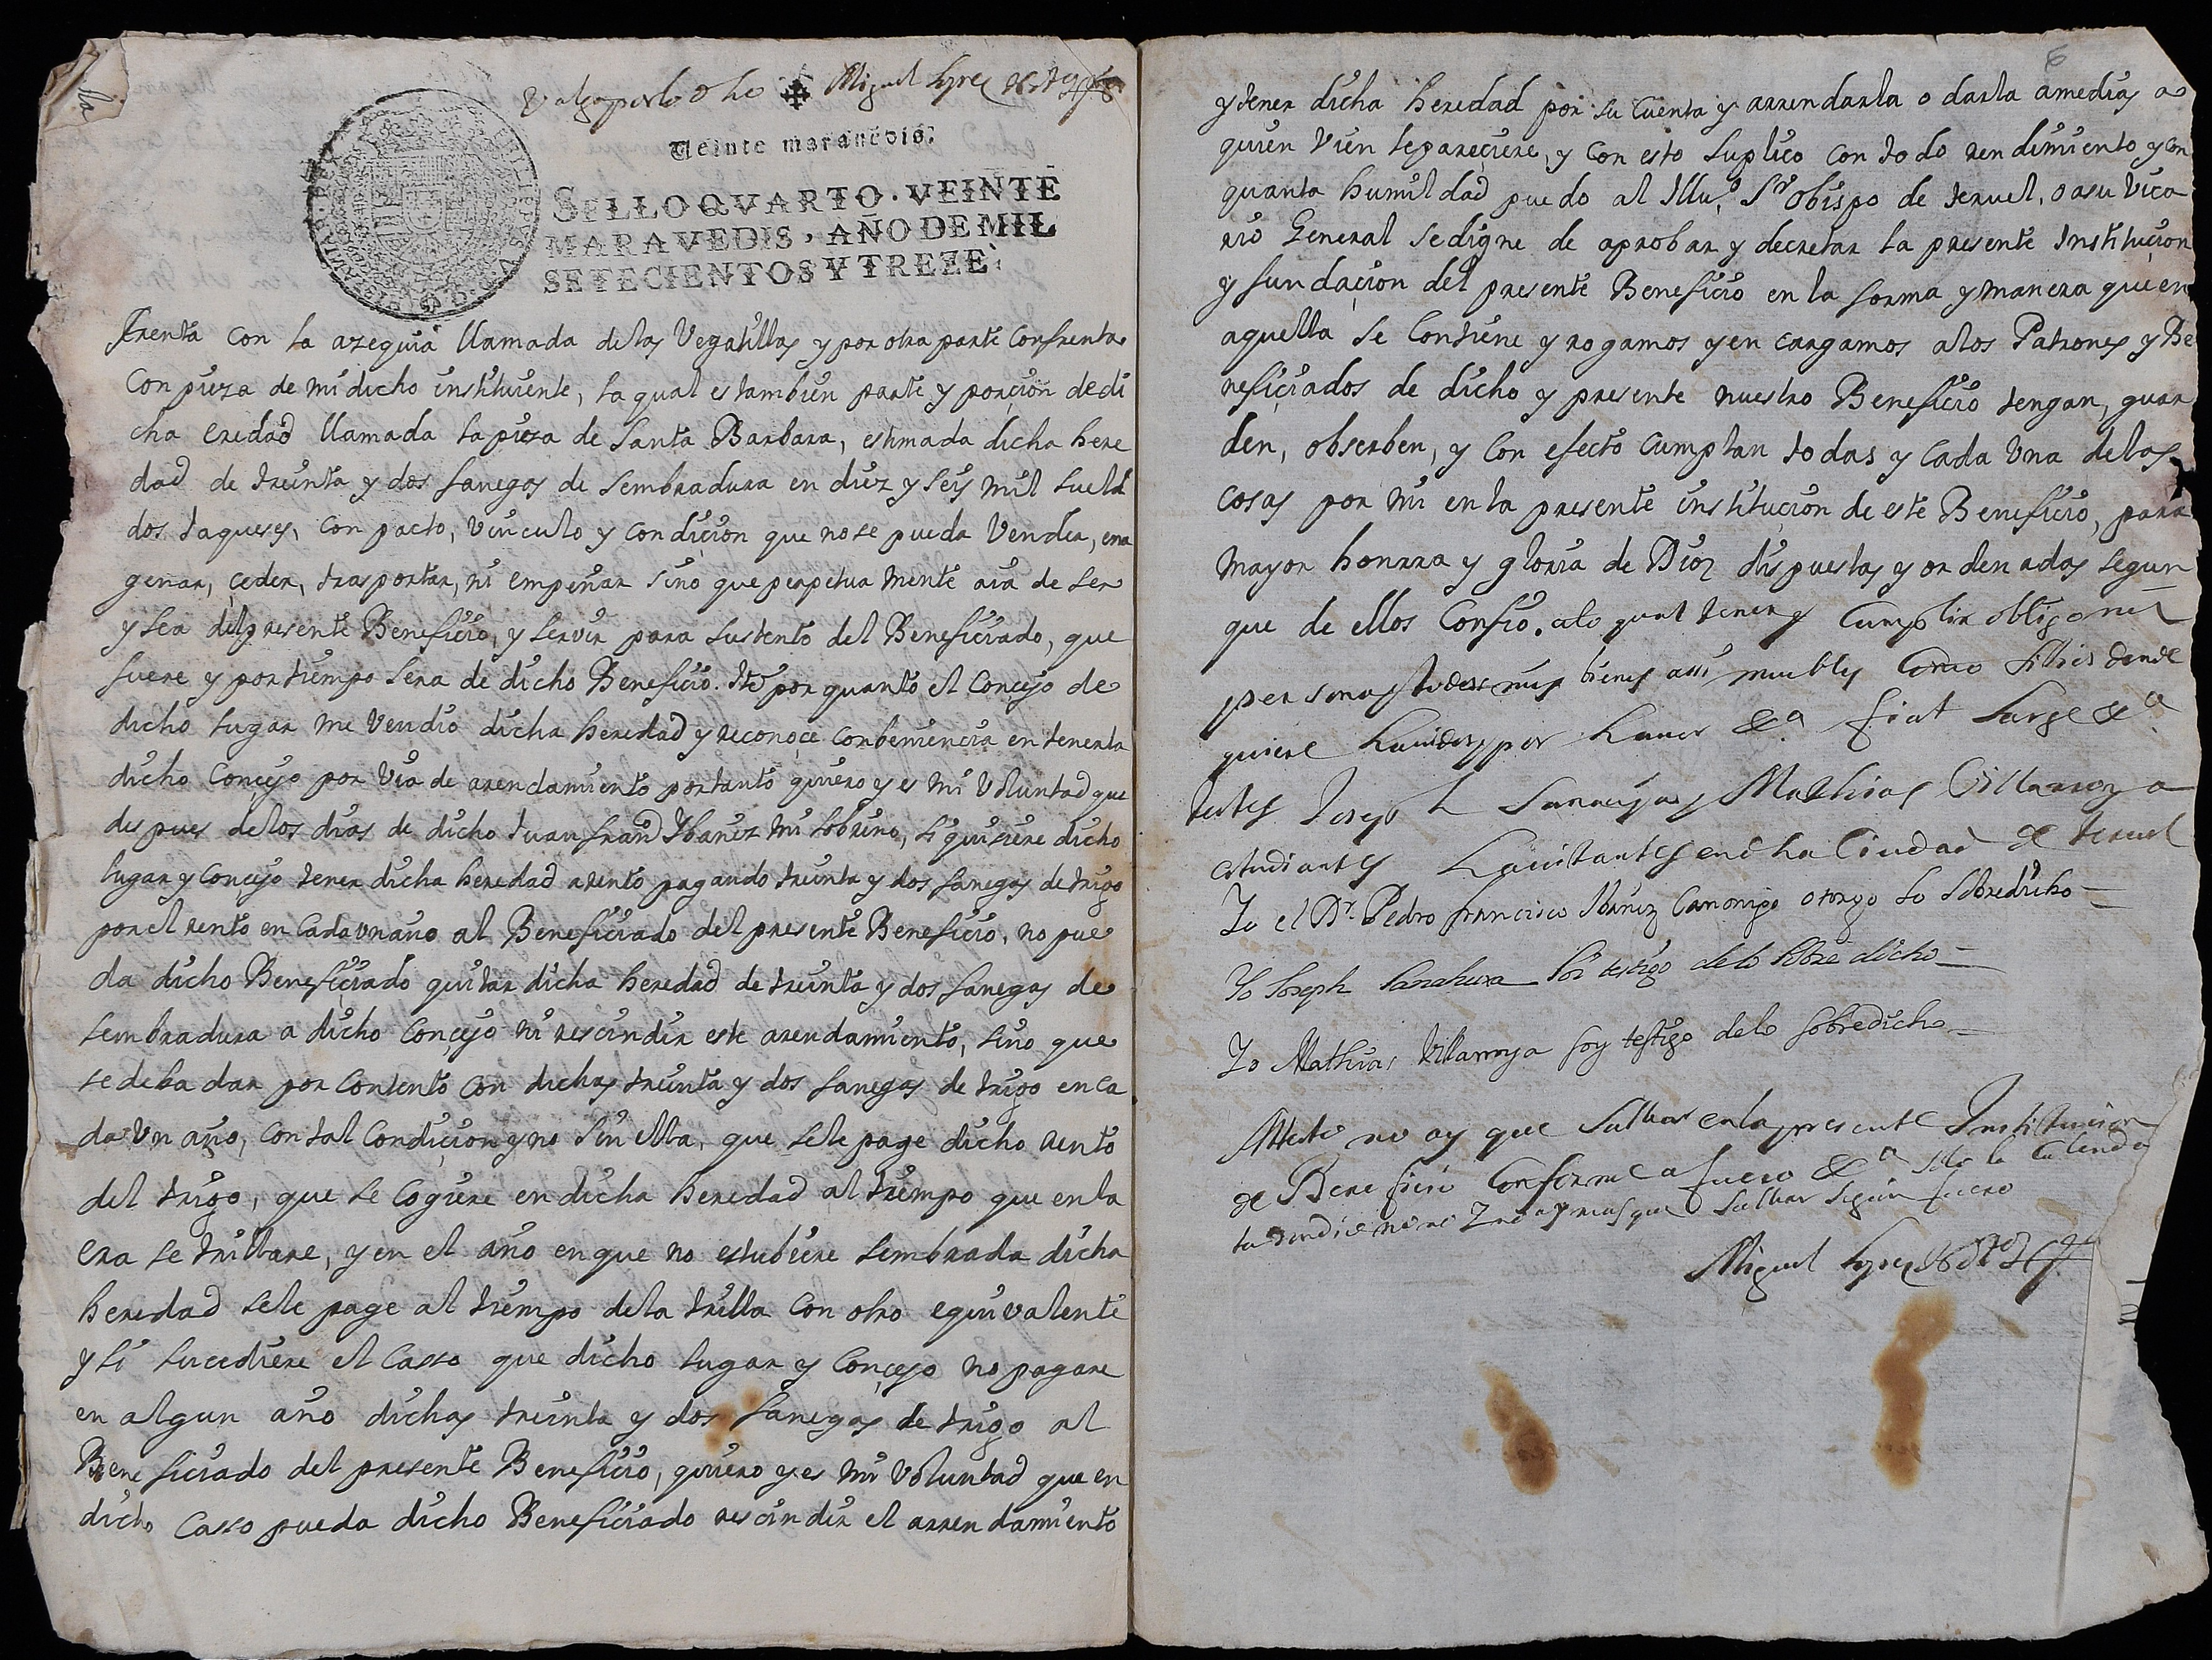 Valga por lo dho ✠ Miguel Lopez
Veinte maravedis.
SELLO QVARTO. VEINTE
MARAVEDIS, AÑO DE MIL
SETECIENTOS Y TREZE.
frenta con la azequia llamada de las Vegatillas y por otra parte Confrenta
Con pieza de mi dicho instituiente, la qual es tambien parte y porçion de di
cha eredad llamada la pieza de Santa Barbara, estimada dicha here
dad de treinta y dos fanegas de sembradura en diez y seis mil suel
dos Jaqueses, con pacto, vinculo y condiçion que no se pueda Vender, ena
genar, çeder, trasportar, ni empeñar sino que perpetuamente aia de ser
y sea del presente Benefiçio, y servir para sustento del Benefiçiado, que
fuere y por tiempo sera de dicho Benefiçio. Ittẽ por quanto el Conçejo de
dicho lugar me vendio dicha heredad y reconoçe conbeniençia en tenerla
dicho Conçejo por via de arendamiento por tanto quiero y es mi voluntad que
despues de los dias de dicho Juan Franco Ibañez mi sobrino, si quisiere dicho
lugar y Conçejo tener dicha heredad a rento pagando treinta y dos fanegas de trigo
por el rento en cada un año al Benefiçiado del presente Benefiçio, no pue
da dicho Benefiçiado quitar dicha heredad de treinta y dos fanegas de
sembradura a dicho Conçejo ni rescindir este arendamiento, sino que
se deba dar por contento con dichas treinta y dos fanegas de trigo en ca
da un año, con tal condiçion y no sin ella, que se le page dicho rento
del trigo, que se cogiere en dicha heredad al tiempo que en la
era se trillare, y en el año en que no estubiere sembrada dicha
heredad se le page al tiempo de la trilla con otro equivalente
y si sucediere el casso que dicho lugar y Conçejo no pagare
en algun año dichas treinta y dos fanegas de trigo al
Benefiçiado del presente Benefiçio, quiero y es mi voluntad que en
dicho casso pueda dicho Benefiçiado rescindir el arrendamiento
6
y tener dicha heredad por su cuenta y arrendarla o darla a medias a
quien vien le pareçiere, y con esto suplico con todo rendimiento y con
quanta humildad puedo al Illu.o Sr Obispo de Teruel, o a su Vica
rio General se digne de aprobar y decretar la presente Instituçion
y fundaçion del presente Benefiçio en la forma y manera que en
aquella se contiene y rogamos y encargamos a los Patrones y Be
nefiçiados de dicho y presente nuestro Benefiçio tengan, guar
den, obserben, y con efecto cumplan todas y cada una de las
cosas por mi en la presente instituçion de este Benefiçio, para
mayor honrra y gloria de Dios dispuestas y ordenadas segun
que de ellos confio. a lo qual tener y cumplir obligo mi
persona y todos mis bienes assi muebles como sitios donde
quiere havidos y por haver &a. fiat large &a
testes Joseph Sanahuja y Mathias Villarroya
estudiantes havitantes en dha Ciudad de Teruel
Yo el Dr. Pedro Francisco Ibañez Canonigo otorgo lo sobredicho
Yo Joseph Sanahuxa soi testigo de lo sobre dicho
Yo Mathias Villarroya soy testigo de lo sobredicho
Attesto no ay que salvar en la presente Institucion
de Benefiçio conforme a fuero &a solo la calenda
ta no ay mas que salvar segun fuero
Miguel Lopez Nott.o